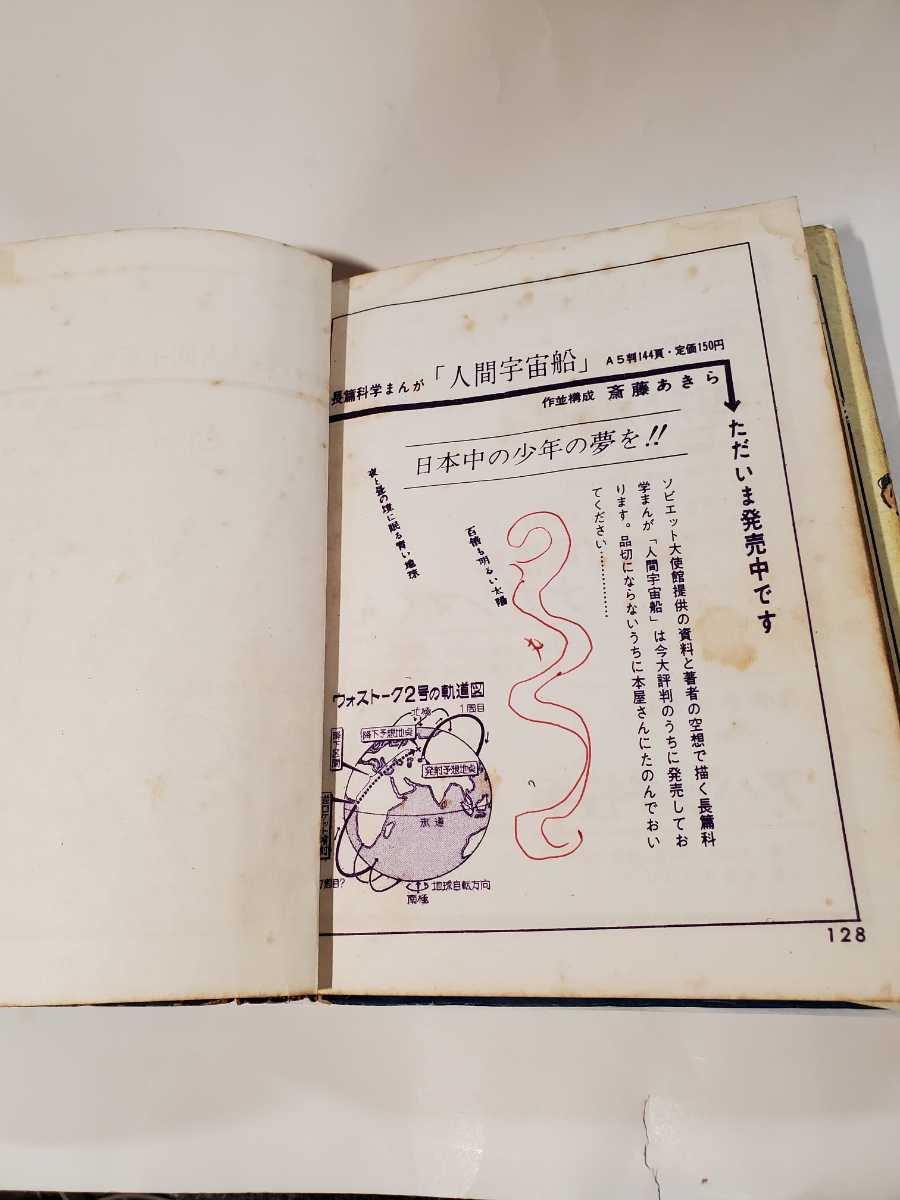 長篇科学まんが「人間宇宙船」 A5判144頁・定価150円
作並構成 斎藤あきら
ただいま発売中です
日本中の少年の夢を!!
ソビエット大使館提供の資料と著者の空想で描く長篇科
学まんが「人間宇宙船」は今大評判のうちに発売してお
ります。品切にならないうちに本屋さんにたのんでおい
てください…………
百倍も明るい太陽
夜と昼の境に眠る青い地球
ウォストーク2号の軌道図
北極
1周目
降下予想地点
発射予想地点
赤道
7周目?
地球自転方向
南極
128